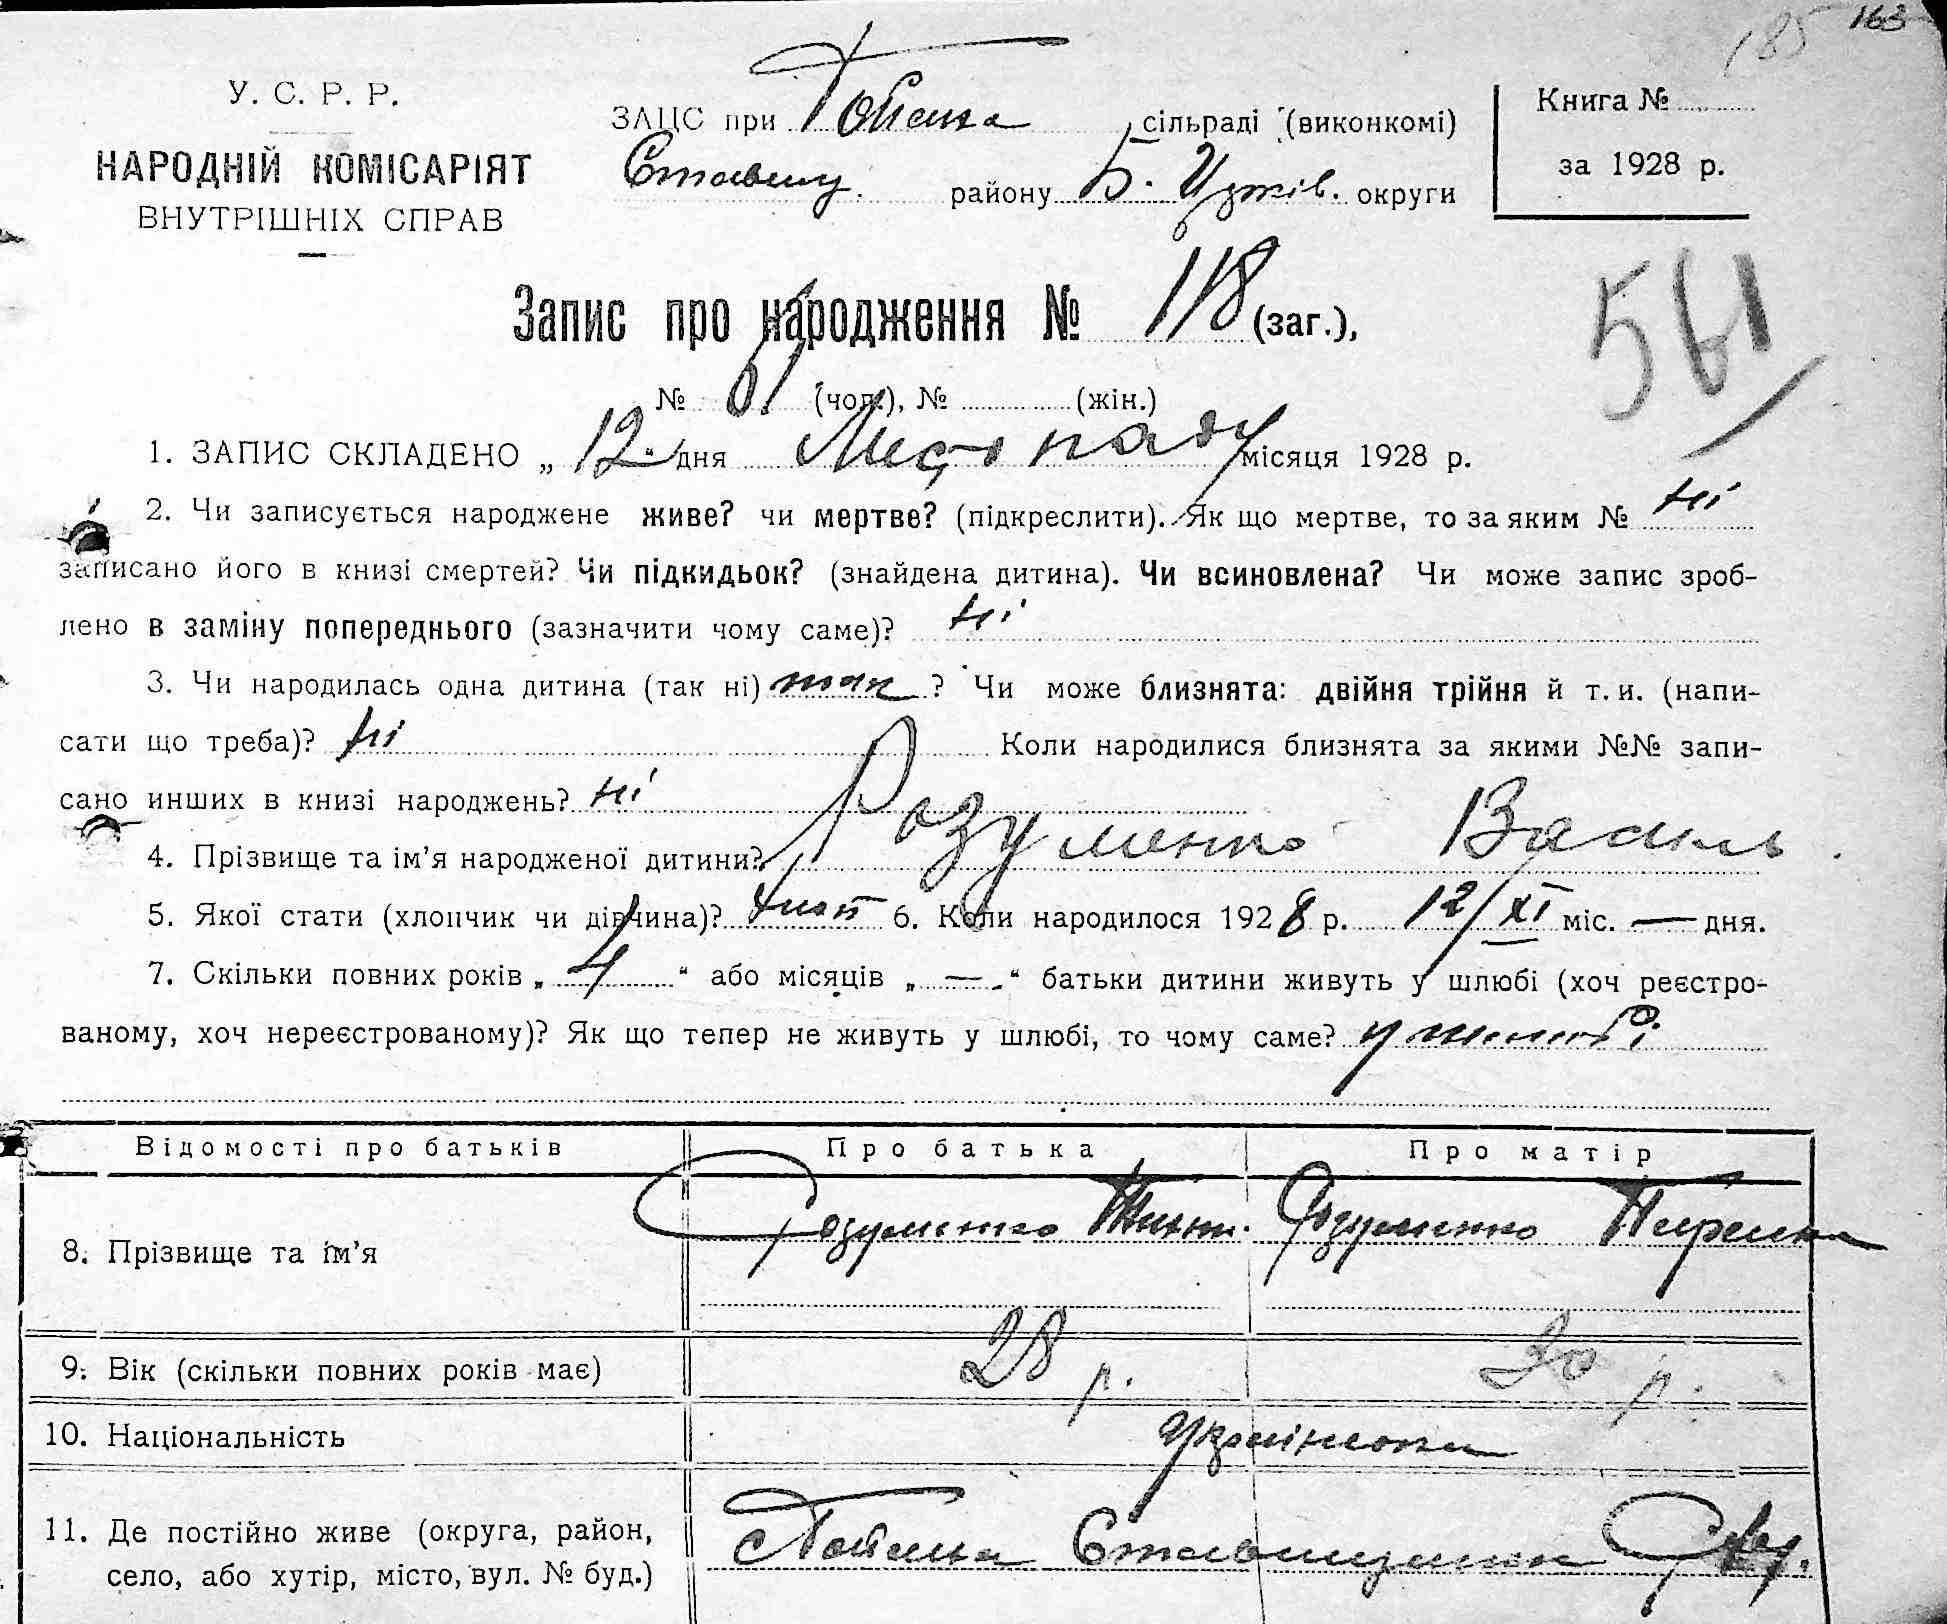 185 163
У. С. Р. Р.
НАРОДНІЙ КОМІСАРІЯТ
ВНУТРІШНІХ СПРАВ
ЗАЦС при сільраді (виконкомі)
Ставищ. району Б. Церків. округи
Книга №
за 1928 р.
Запис про народження № 118 (заг.),
561
№ 61 (чол.), № (жін.)
1. ЗАПИС СКЛАДЕНО „ 12 “ дня Листопаду місяця 1928 р.
2. Чи записується народжене живе? чи мертве? (підкреслити). Як що мертве, то за яким № ні
записано його в книзі смертей? Чи підкидьок? (знайдена дитина). Чи всиновлена? Чи може запис зроб-
лено в заміну попереднього (зазначити чому саме)? ні
3. Чи народилась одна дитина (так ні) так ? Чи може близнята: двійня трійня й т. и. (напи-
сати що треба)? ні Коли народилися близнята за якими №№ запи-
сано инших в книзі народжень? ні
4. Прізвище та ім’я народженої дитини? Розуменко Василь.
5. Якої стати (хлопчик чи дівчина)? 6. Коли народилося 1928 р. 12/XI міс. — дня.
7. Скільки повних років „ 4 “ або місяців „ — “ батьки дитини живуть у шлюбі (хоч реєстро-
ваному, хоч нереєстрованому)? Як що тепер не живуть у шлюбі, то чому саме? у шлюбі
Відомості про батьків Про батька Про матір
8. Прізвище та ім’я Розуменко Розуменко
9. Вік (скільки повних років має) 28 р. 30 р.
10. Національність
11. Де постійно живе (округа, район,
село, або хутір, місто, вул. № буд.)